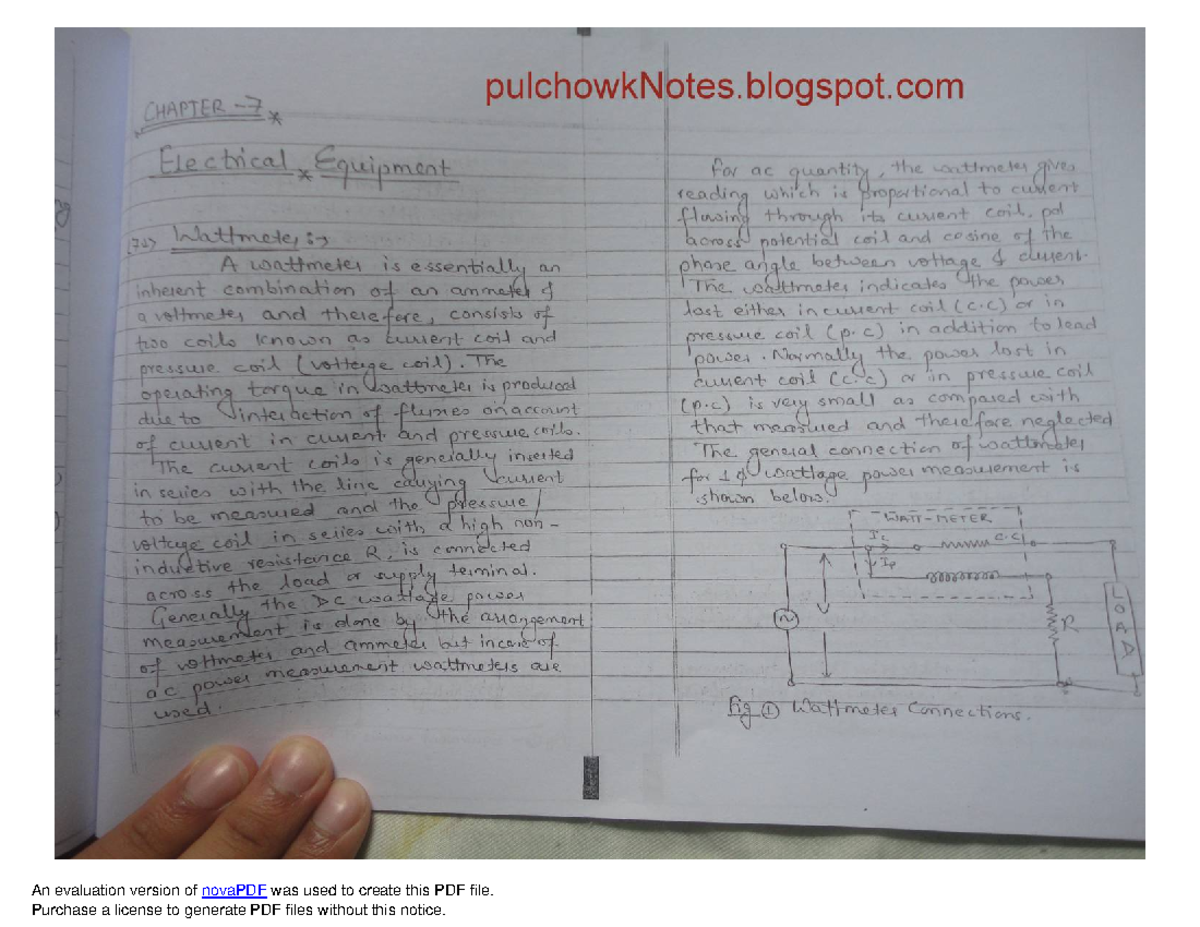 pulchowkNotes.blogspot.com
CHAPTER-7
Electrical Equipment
Wattmeter:→
A wattmeter is essentially an
inherent combination of an ammeter &
a voltmeter and therefore, consists of
two coils known as current coil and
pressure coil (voltage coil). The
operating torque in wattmeter is produced
due to interaction of fluxes on account
of current in current and pressure coils.
The current coils is generally inserted
in series with the line carrying current
to be measured and the pressure/
voltage coil in series with a high non-
inductive resistance R, is connected
across the load or supply terminal.
Generally the DC wattage power
measurement is done by the arrangement
of voltmeter and ammeter but incase of
ac power measurement wattmeters are
used.
For ac quantity, the wattmeter gives
reading which is proportional to current
flowing through its current coil, pd
across potential coil and cosine of the
phase angle between voltage & current.
The wattmeter indicates the power
lost either in current coil (c.c) or in
pressure coil (p.c) in addition to lead
power. Normally the power lost in
current coil (c.c) or in pressure coil
(p.c) is very small as compared with
that measured and therefore neglected
The general connection of wattmeter
for 1ϕ wattage power measurement is
shown below:
WATT-METER
IL
C.C
IP
R
LOAD
Fig ① Wattmeter Connections.
An evaluation version of novaPDF was used to create this PDF file.
Purchase a license to generate PDF files without this notice.